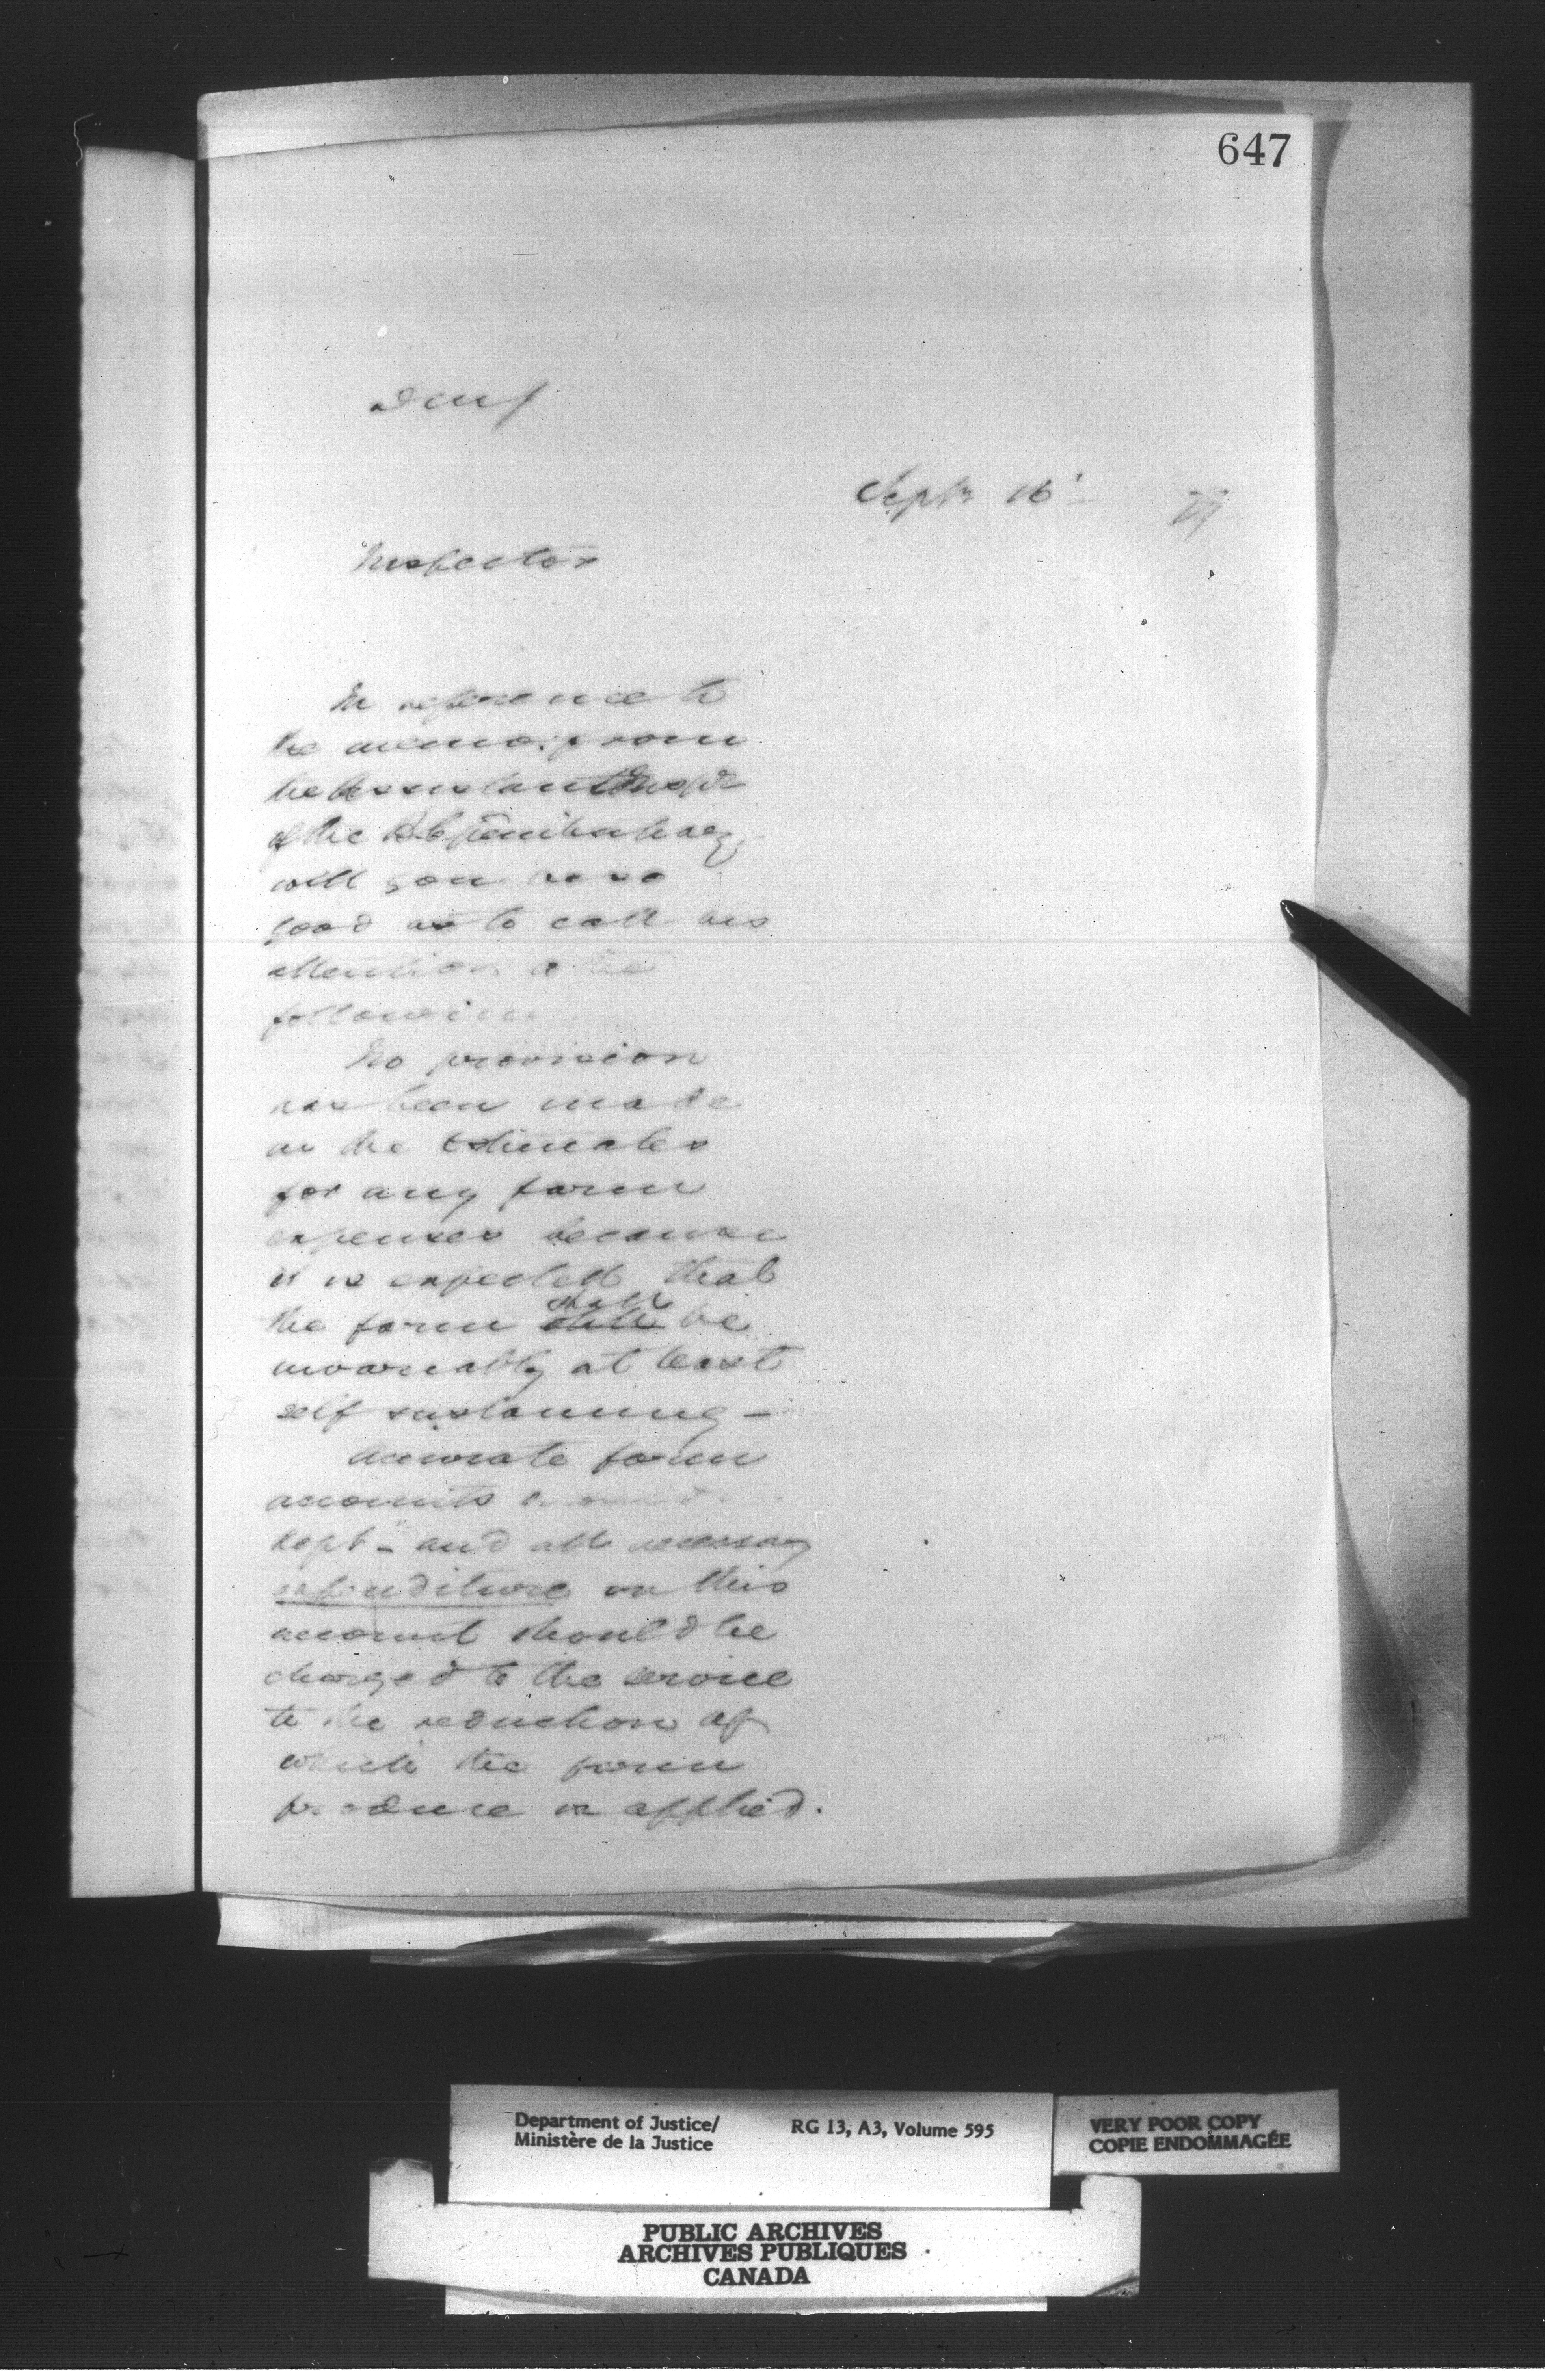 647
Septr 16th 79
Inspector
In reference to
the memo. from
the Assistant Inspr
of the B.C. Penitentiary,
will you be so
good as to call his
attention to the
following
No provision
has been made
in the Estimates
for any farm
expenses because
it is expected that
shall
the farm be
invariably at least
self sustaining -
Accurate farm
accounts should be
kept - and all necessary
expenditure on this
account should be
charged to the service
to the reduction of
which the farm
produce is applied.
Department of Justice/ RG 13, A3, Volume 595
Ministère de la Justice
VERY POOR COPY
COPIE ENDOMMAGÉE
PUBLIC ARCHIVES
ARCHIVES PUBLIQUES
CANADA